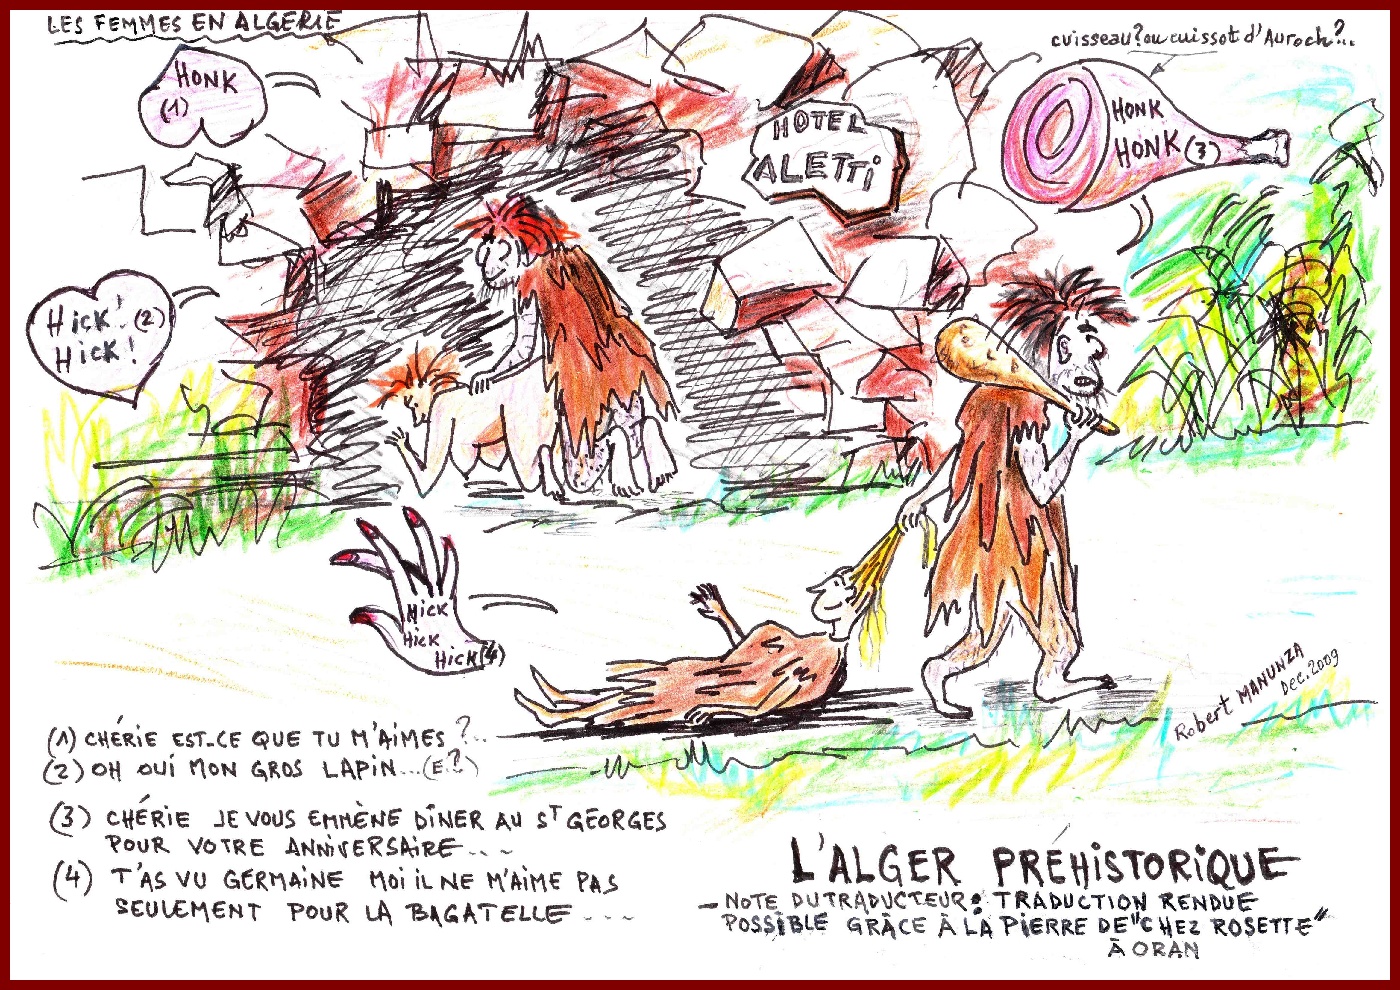 LES FEMMES EN ALGERIE
cuisseau? ou cuissot d'Auroch?..
HONK
(1)
HOTEL
ALETTi
HONK
HONK (3)
HicK! (2)
HicK!
HicK
HicK
HicK (4)
Robert MANUNZA
Dec. 2009
(1) CHÉRIE EST-CE QUE TU M'AiMES ?..
(2) OH OUi MON GROS LAPiN...(E?)
(3) CHÉRIE JE VOUS EMMÈNE DÎNER AU ST GEORGES
POUR VOTRE ANNiVERSAiRE...
(4) T'AS VU GERMAiNE MOi iL NE M'AiME PAS
SEULEMENT POUR LA BAGATELLE ...
L'ALGER PRÉHiSTORiQUE
- NOTE DU TRADUCTEUR: TRADUCTiON RENDUE
POSSiBLE GRÂCE À LA PiERRE DE "CHEZ ROSETTE"
À ORAN